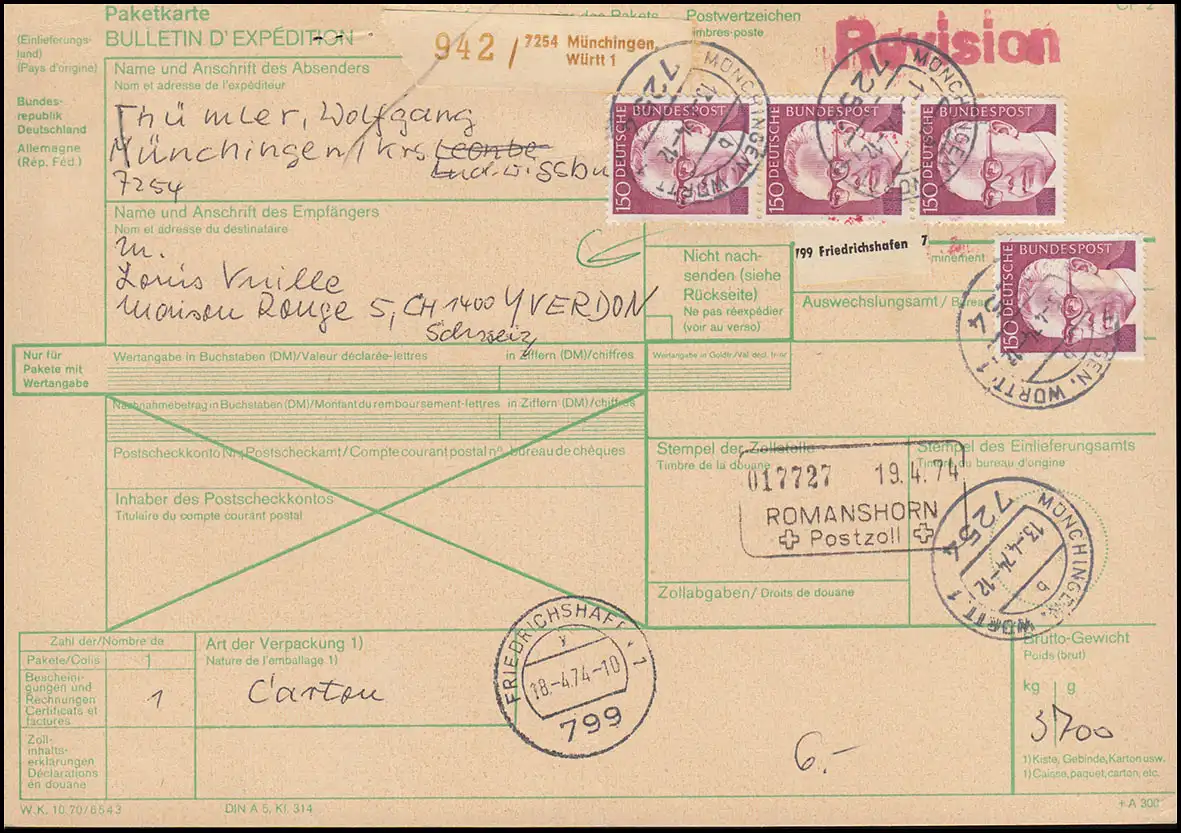 Paketkarte
BULLETIN D'EXPÉDITION
(Einlieferungs-
land)
(Pays d'origine)
Bundes-
republik
Deutschland
Allemagne
(Rép. Féd.)
942 / 7254 Münchingen,
Württ 1
des Pakets
Postwertzeichen
Timbres-poste
CP 2
Revision
Name und Anschrift des Absenders
Nom et adresse de l'expéditeur
Thümler, Wolfgang
Münchingen / Krs Leonbe
Ludwigsbu
7254
DEUTSCHE BUNDESPOST 150
DEUTSCHE BUNDESPOST 150
DEUTSCHE BUNDESPOST 150
7254 MÜNCHINGEN, WÜRTT. 1 b
MÜNCHINGEN
Name und Anschrift des Empfängers
Nom et adresse du destinataire
M.
Louis Vuille
Maison Rouge 5, CH 1400 YVERDON
Schweiz
Nicht nach-
senden (siehe
Rückseite)
Ne pas réexpédier
(voir au verso)
799 Friedrichshafen 7
minement
Auswechslungsamt / Bureau
DEUTSCHE BUNDESPOST 150
WÜRTT. 1
Nur für
Pakete mit
Wertangabe
Wertangabe in Buchstaben (DM)/Valeur déclarée-lettres
in Ziffern (DM)/chiffres
Wertangabe in Goldfr./Val. décl. fr-or
Nachnahmebetrag in Buchstaben (DM)/Montant du remboursement-lettres
in Ziffern (DM)/chiffres
Postscheckkonto Nr./Postscheckamt/Compte courant postal n°, bureau de chèques
Inhaber des Postscheckkontos
Titulaire du compte courant postal
Stempel der Zollstelle
Timbre de la douane
017727 19.4.74
ROMANSHORN
Postzoll
Stempel des Einlieferungsamts
Timbre du bureau d'origine
7254 MÜNCHINGEN, WÜRTT. 1
13.-4.74-12
b
Zollabgaben/ Droits de douane
Zahl der/Nombre de
Pakete/Colis 1
Bescheini-
gungen und
Rechnungen
Certificats et
factures
1
Zoll-
inhalts-
erklärungen
Déclarations
en douane
Art der Verpackung 1)
Nature de l'emballage 1)
Carton
FRIEDRICHSHAF 1
y
18.-4.74-10
799
6.-
Brutto-Gewicht
Poids (brut)
kg g
3700
1) Kiste, Gebinde, Karton usw.
1) Caisse, paquet, carton, etc.
W.K. 10.70/6543
DIN A 5, Kl. 314
+ A 300